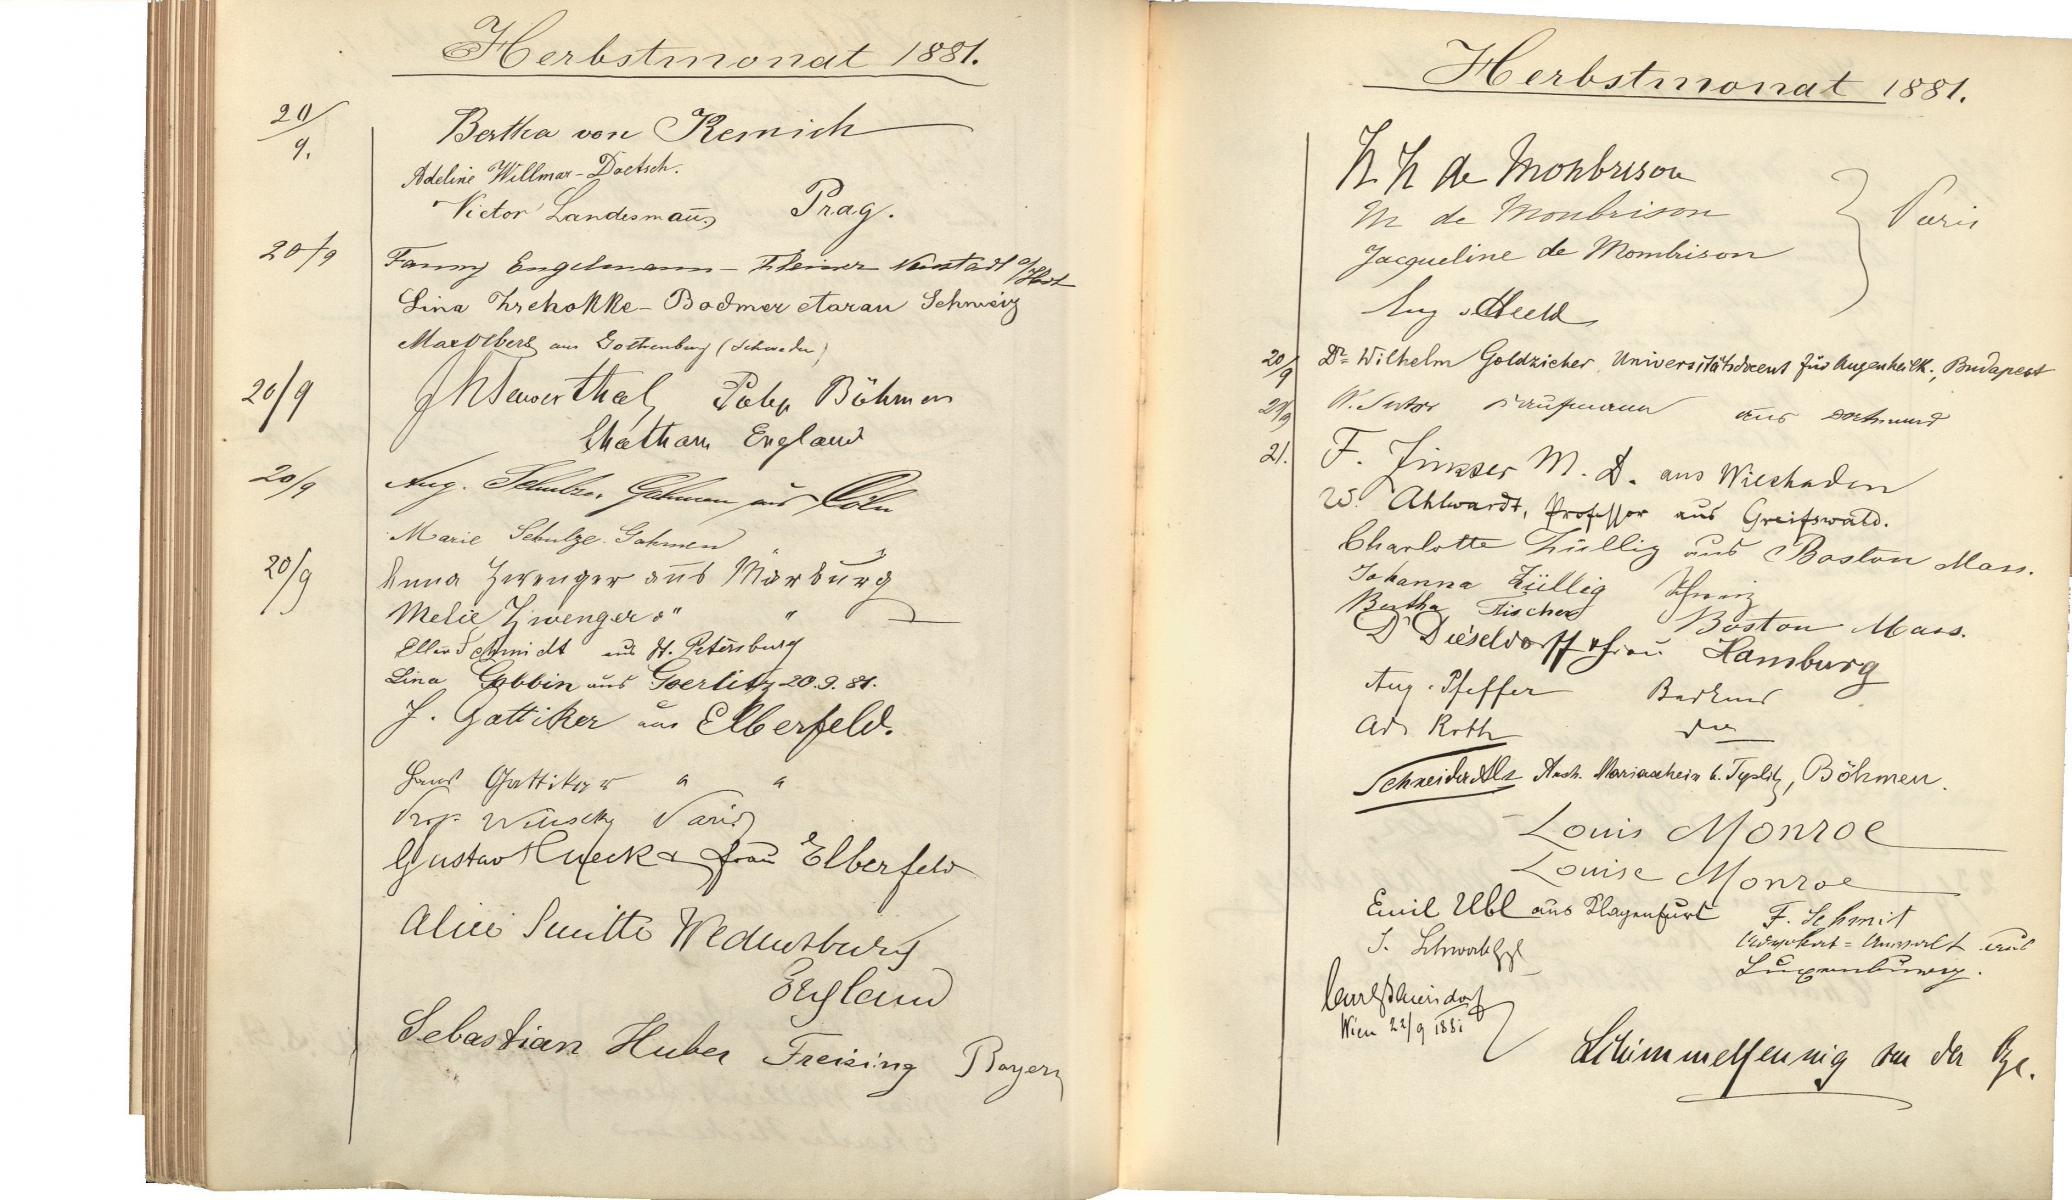 Herbstmonat 1881.
20/9.
Bertha von Remich
Adeline Willmar-Doetsch.
Victor Landesmañ, Prag.
20/9
Fanny Engelmann- Neustadt a/Hdt
Lina Zschokke-Bodmer Aarau Schweiz
aus Gothenburg (Schweden)
20/9
Böhmen
Chatham England
20/9
Aug. Schulze, Gahmen aus Cöln
Marie Schulze-Gahmen "
20/9
Anna Zwenger aus Marburg
Melie Zwenger " "
Ellen Schmidt aus St. Petersburg
Lina Gobbin aus Goerlitz 20.9.81.
J. Gattiker aus Elberfeld.
Hans Gattiker " "
Prof. Paris
Gustav Hueck & Frau Elberfeld
Alice Smith Wednesbury
England
Sebastian Huber Freising Bayern
Herbstmonat 1881.
de Monbrison
M de Monbrison
Jacqueline de Monbrison
Paris
Aug. Held
20/9 Dr Wilhelm Goldzieher, Universitätsdocent für Augenheilk., Budapest
21/9 Kaufmann aus Dortmund
21. F. M. D. aus Wiesbaden
W. Ahlwardt, Professor aus Greifswald.
Charlotte Züllig aus Boston Mass.
Johanna Züllig Schweiz
Bertha Fischer Boston Mass.
Dr Dieseldorff & Frau Hamburg
Aug. Pfeffer
Ad. Roth do
Schneider Als Mariaschein b. Teplitz, Böhmen.
Louis Monroe
Louise Monroe
Emil Ubl aus Klagenfurt
F. Schmit
Advokat-Anwalt aus
Luxemburg.
Wien 22/9 1881
Schimmelfennig von der Oye.